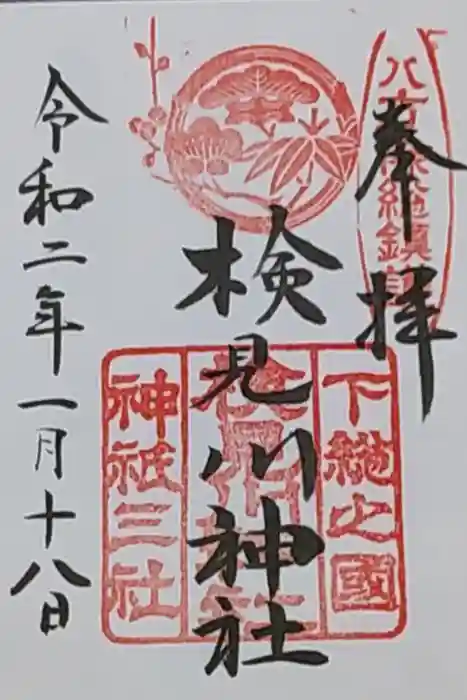 奉拝
八方除総鎮護
検見川神社
下総之國
神祇三社
令和二年一月十八日